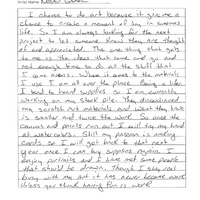 Artist Name
I choose to do art because it gives me a
chance to create a moment of joy in someones
life. So I am always looking for the next
project to let someone know they are thought
of and appreciated. The one thing that gets
to me is the ideas that come and go and
not enough time to do all the stuff that
I come across. When it comes to the materials
I use I am all over the place. Being a
I tend to hoard supplies so I am currently
working on my stock pile. They discontinued
my scratch art materials and what they have
is smaller and twice the work. So once the
canvas and pencils run out I will try my hand
at water colors. Still my passion is making
cards so I will get back to that next
year once I can buy supplies again. I
enjoy portraits and I have met some people
that should be drawn. Though I stay real
busy with my art it has never become work
unless you think having fun is work